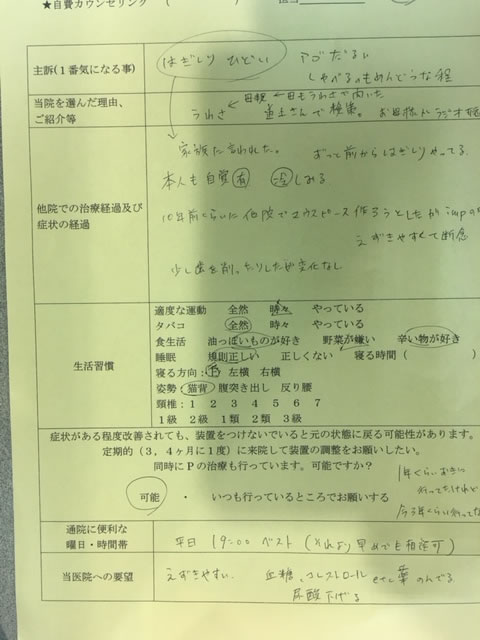 ★自費カウンセリング
主訴(1番気になる事)
はぎしり ひどい アゴだるい
しゃべるのもめんどうな程
当院を選んだ理由、
ご紹介等
うわさ
で検索。
他院での治療経過及び
症状の経過
家族に言われた。 ずっと前からはぎしりやってる
本人も自覚 有
10年前くらいに他院でマウスピース作ろうとしたがimpの
えずきやすくて断念
少し歯を削ったりしたが変化なし
生活習慣
適度な運動 全然 時々 やっている
タバコ 全然 時々 やっている
食生活 油っぽいものが好き 野菜が嫌い 辛い物が好き
睡眠 規則正しい 正しくない 寝る時間(
寝る方向:上 左横 右横
姿勢:猫背 腹突き出し 反り腰
頚椎:1 2 3 4 5 6 7
1級 2級 1類 2類 3級
症状がある程度改善されても、装置をつけないでいると元の状態に戻る可能性があります。
定期的(3、4ヶ月に1度)に来院して装置の調整をお願いしたい。
同時にPの治療も行っています。可能ですか?
1年くらいおきに
行ってたけれど
可能 ・ いつも行っているところでお願いする
通院に便利な
曜日・時間帯
平日 19:00 ベスト (それより早めでも相談可)
当医院への要望
えずきやすい. 血糖、コレストロール etc 薬 のんでる
尿酸下げる